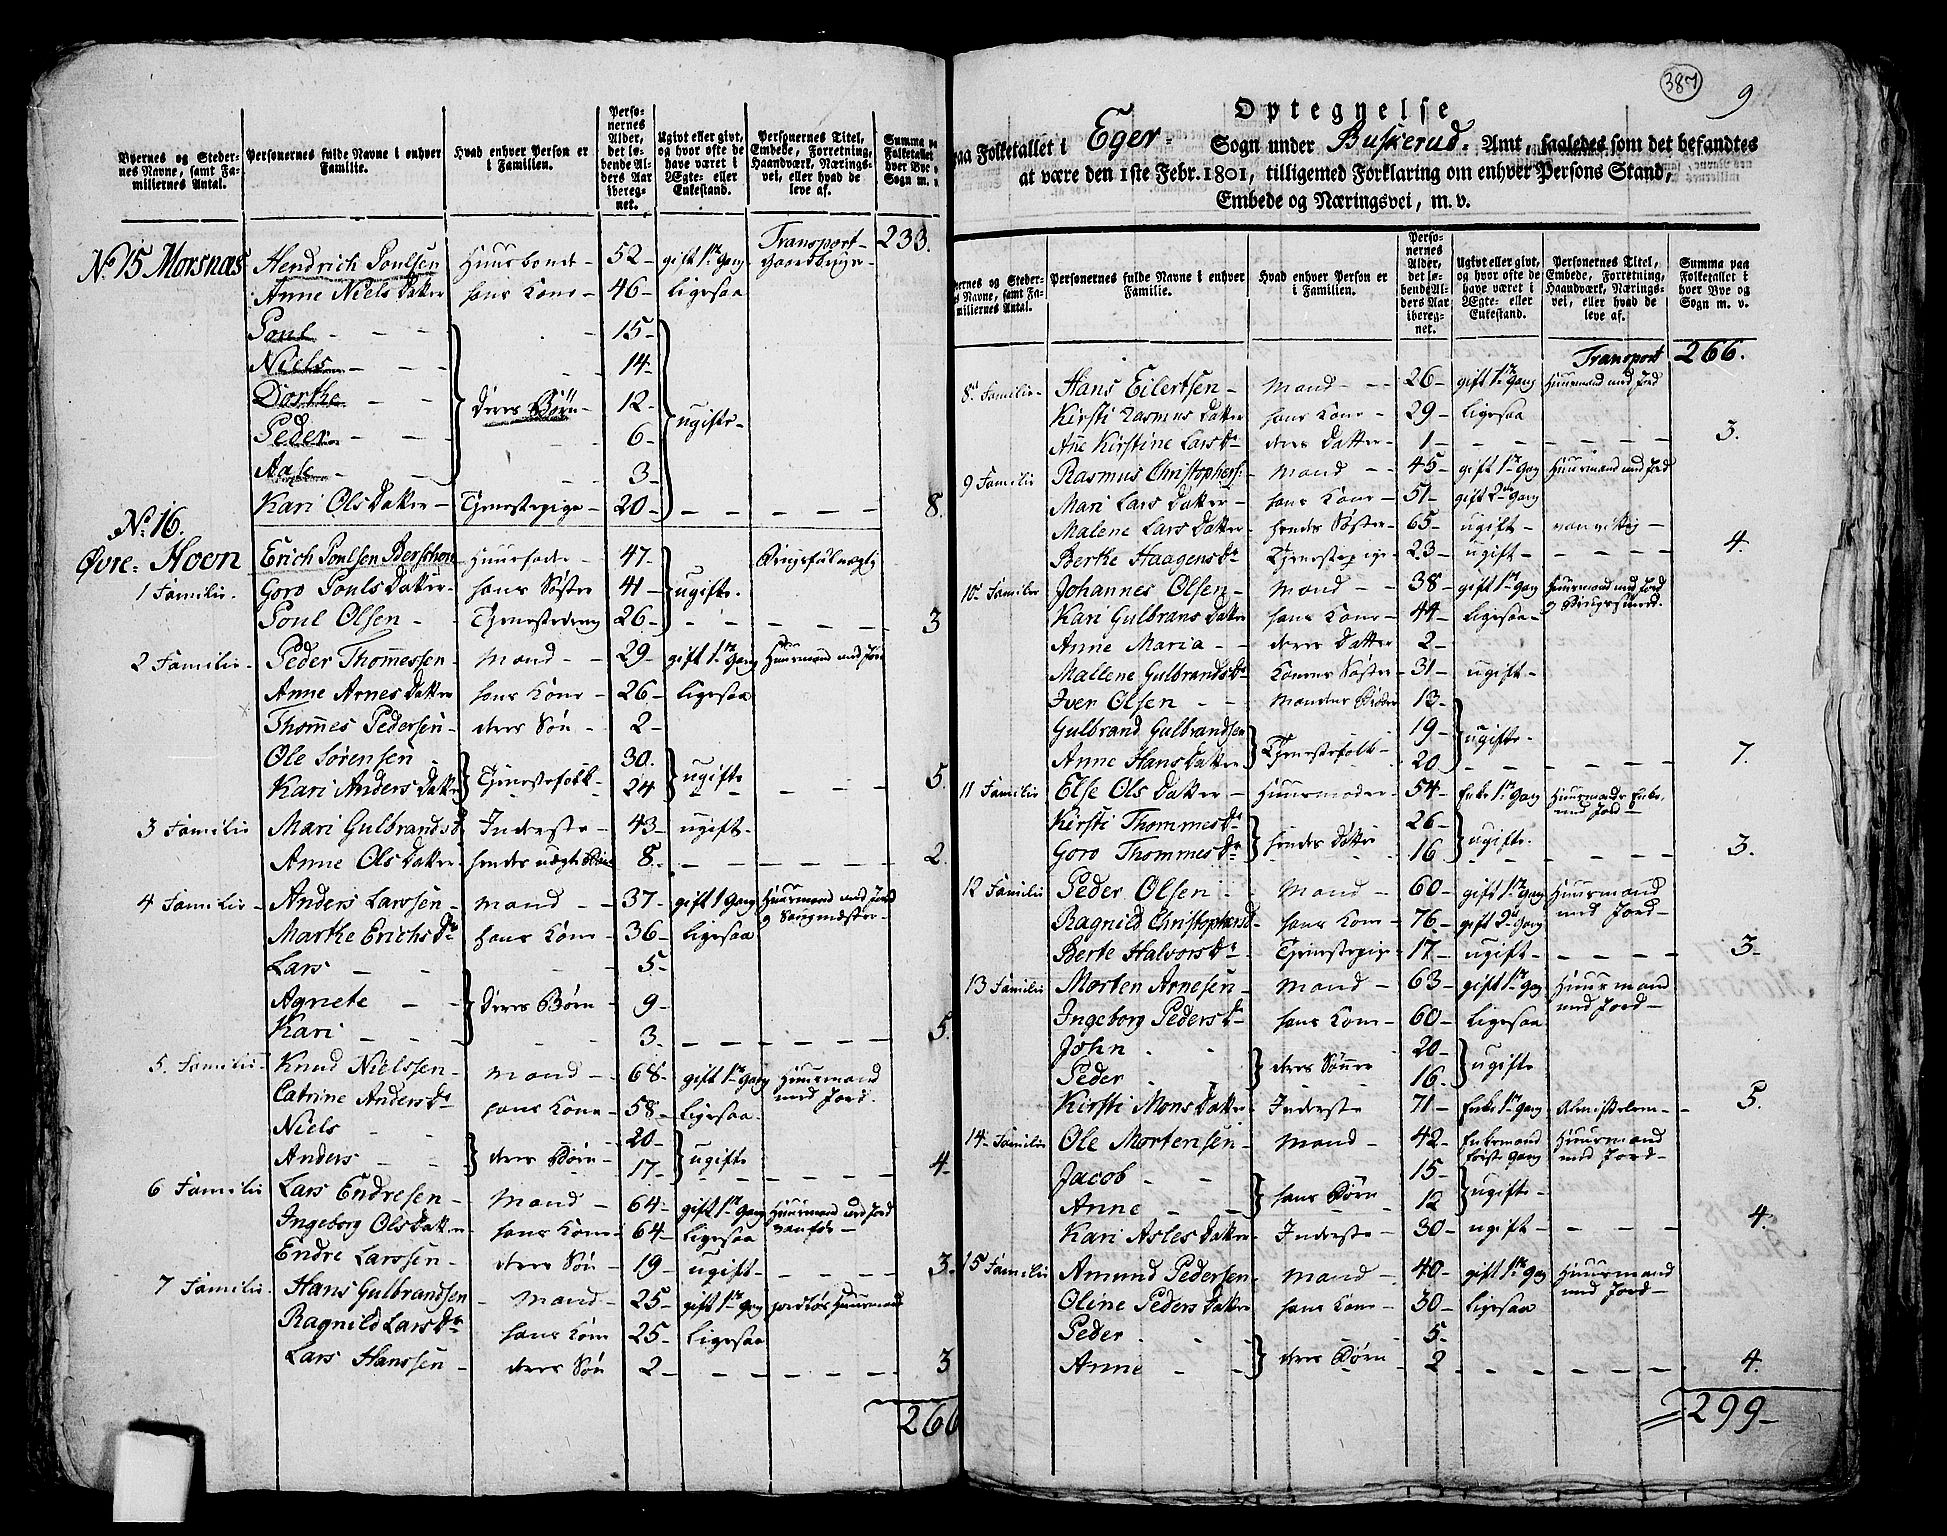 Byernes og Steder-
nes Navne, samt Fa-
milliernes Antal.
Personernes fulde Navne i enhver
Familie.
Hvad enhver Person er
i Familien.
Perso-
nernes
Alder,
det lø-
bende Al-
ders Aar
ibereg-
net.
Ugivt eller givt,
og hvor ofte de
have været i
Ægte- eller
Enkestand.
Personernes Titel,
Embede, Forretning,
Haandværk, Nærings-
vei, eller hvad de
leve af.
Summa paa
Folketallet
hver Bye
Sogn m. v.
Transport 233.
No 15 Morsnæs Hendrich Poulsen Huusbonde 52 gift 1te Gang Gaardbruger
Anne Niels Datter hans Kone 46 ligesaa
Poul 15
Niels 14
Dorthe deres Børn 12 ugifte
Peder 6
Aase 3
Kari Ols Datter Tjenestepige 20 8.
No 16.
Øvre Hoen Erich Poulsen Huusfader 47
1 Familie. Goro Pouls Datter hans Søster 41 ugifte
Poul Olsen Tjenestedreng 26 3
2 Familie Peder Thomessen Mand 29 gift 1te Gang Huusmand med Jord
Anne Arnes Datter hans Kone 26 ligesaa
Thommes Pedersen deres Søn 2
Ole Sørensen 30. ugifte
Kari Anders Datter Tjenestefolk 24 5
3 Familie Mari Gulbrands Dr Inderste 43 ugift
Anne Ols Datter hendes uægte Barn 8 2.
4 Familie Anders Larsen Mand 37 gift 1 Gang Huusmand med Jord
Marthe Erichs Dr hans Kone 36 ligesaa
Lars 5
Agnete deres Børn 9
Kari 3. 5.
5. Familie Knud Nielssen Mand 68 gift 1te Gang Huusmand
med Jord.
Catrine Anders Dr hans Kone 58 ligesaa
Niels 20 ugifte
Anders deres Børn 17 4
6 Familie Lars Endresen Mand 64 gift 1te Gang Huusmand med Jord
vanfør
Ingeborg Ols Datter hans Kone 64 ligesaa
Endre Larssen deres Søn 19 ugift 3.
7 Familie Hans Gulbrandsen Mand 25 gift 1te Gang jordløs Huusmand
Ragnild Lars Dr hans Kone 25 ligesaa
Lars Hanssen deres Søn 2 3
266
387
9
Optegnelse
paa Folketallet i Eger Sogn under Buskerud Amt, saaledes som det befandtes
at være den 1ste Febr. 1801, tilligemed Forklaring om enhver Persons Stand,
Embede og Næringsvei, m. v.
Byernes og Steder-
nes Navne, samt Fa-
milliernes Antal.
Personernes fulde Navne i enhver
Familie.
Hvad enhver Person er
i Familien.
Perso-
nernes
Alder,
det lø-
bende Al-
ders Aar
ibereg-
net.
Ugivt eller givt,
og hvor ofte de
have været i
Ægte- eller
Enkestand.
Personernes Titel,
Embede, Forretning,
Haandværk, Nærings-
vei, eller hvad de
leve af.
Summa paa
Folketallet i
hver Bye og
Sogn m. v.
Transport 266.
8 Familie Hans Eilertsen Mand 26 gift 1te Gang Huusmand med Jord
Kirsti Rasmus Datter hans Kone 29 ligesaa
Ane Kirstine Lars Dr deres Datter 1 3.
9 Familie Rasmus Christophers. Mand 45 gift 1te Gang Huusmand med Jord
Mari Lars Datter hans Kone 51 gift 2den Gang
Malene Lars Datter hendes Søster 65 ugift vanvittig
Berthe Haagens Dr Tjenestepige 23 ugift 4.
10 Familie Johannes Olsen Mand 38 gift 1te Gang Huusmand med Jord
Kari Gulbrans Datter hans Kone 44 ligesaa
Anne Maria deres Datter 2
Mallene Gulbrands Dr Konens Søster 31 ugift
Iver Olsen Mandens Broder 13
Gulbrand Gulbrandsen 19 ugifte
Anne Hans Datter Tjenestefolk 20 7.
11 Familie Else Ols Datter Huusmoder 54 Enke 1te Gang Huusmands Enke
med Jord
Kirsti Thommes Dr 26 ugifte
Goro Thommes Dr hendes Døttre 16 3.
12 Familie Peder Olsen Mand 60 gift 1te Gang Huusmand
med Jord
Ragnild Christophersd hans Kone 76 gift 2den Gang
Berte Halvors Dr Tjenestepige 17 ugift 3
13 Familie Morten Arnesen Mand 63 gift 1te Gang Huusmand
med Jord
Ingeborg Peders Dr hans Kone 60 ligesaa
John 20 ugifte
Peder deres Sønner 16
Kirsti Mons Datter Inderste 71 Enke 1te Gang Almisselem 5.
14 Familie Ole Mortensen Mand 42 Enkemand
første Gang Huusmand
med Jord
Jacob 15 ugifte
Anne hans Børn 12
Kari Asles Datter Inderste 30 ugift 4.
15 Familie Amund Pedersen Mand 40 gift 1te Gang Huusmand
med Jord
Oline Peders Datter hans Kone 30 ligesaa
Peder 5
Anne deres Børn 2 4.
299